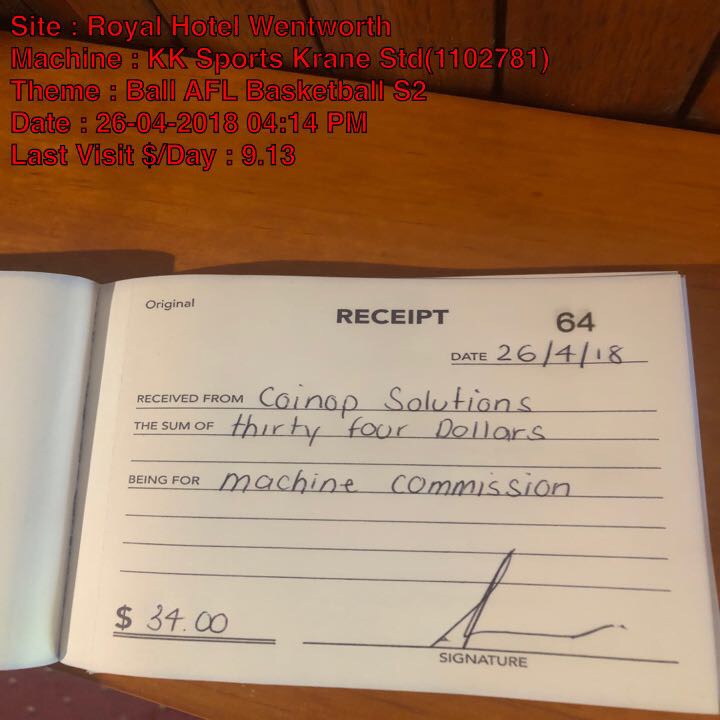 Site : Royal Hotel Wentworth
Machine : KK Sports Krane Std(1102781)
Theme : Ball AFL Basketball S2
Date : 26-04-2018 04:14 PM
Last Visit $/Day : 9.13
Original
RECEIPT
64
DATE 26/4/18
RECEIVED FROM Coinop Solutions
THE SUM OF thirty four Dollars
BEING FOR machine commission
$ 34.00
SIGNATURE